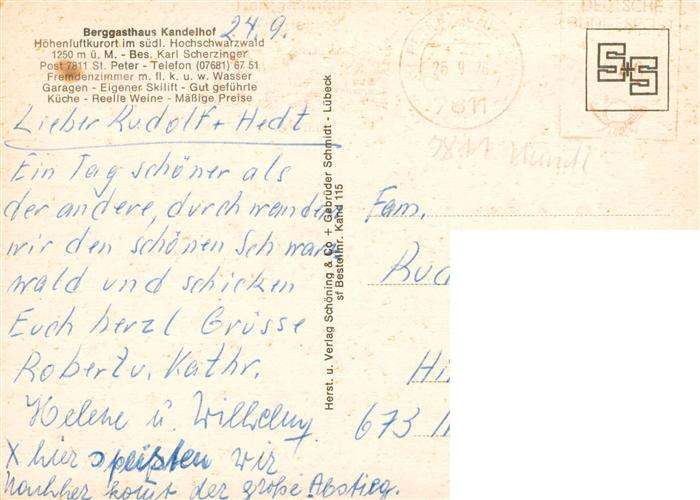 Berggasthaus Kandelhof
Höhenluftkurort im südl. Hochschwarzwald
1250 m ü. M. - Bes. Karl Scherzinger
Post 7811 St. Peter - Telefon (07681) 67 51
Fremdenzimmer m. fl. k. u. w. Wasser
Garagen - Eigener Skilift - Gut geführte
Küche - Reelle Weine - Mäßige Preise
24.9.
Lieber Rudolf + Hedt
Ein Tag schöner als
der andere, durchwandern
wir den schönen Schwarz
wald und schicken
Euch herzl Grüsse
Robert u. Kathr.
Helene u. Wilhelm
X hier speisten wir
nachher komt der große Abstieg.
Herst. u. Verlag Schöning & Co + Gebrüder Schmidt - Lübeck
sf Bestellnr. Kand 115
25.9.
7811
DEUTSCHE
S+S
7811
Fam.
Rud
Hi
673